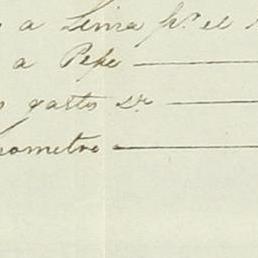 a Lima pr. el
a Pepe
gastos
ometro